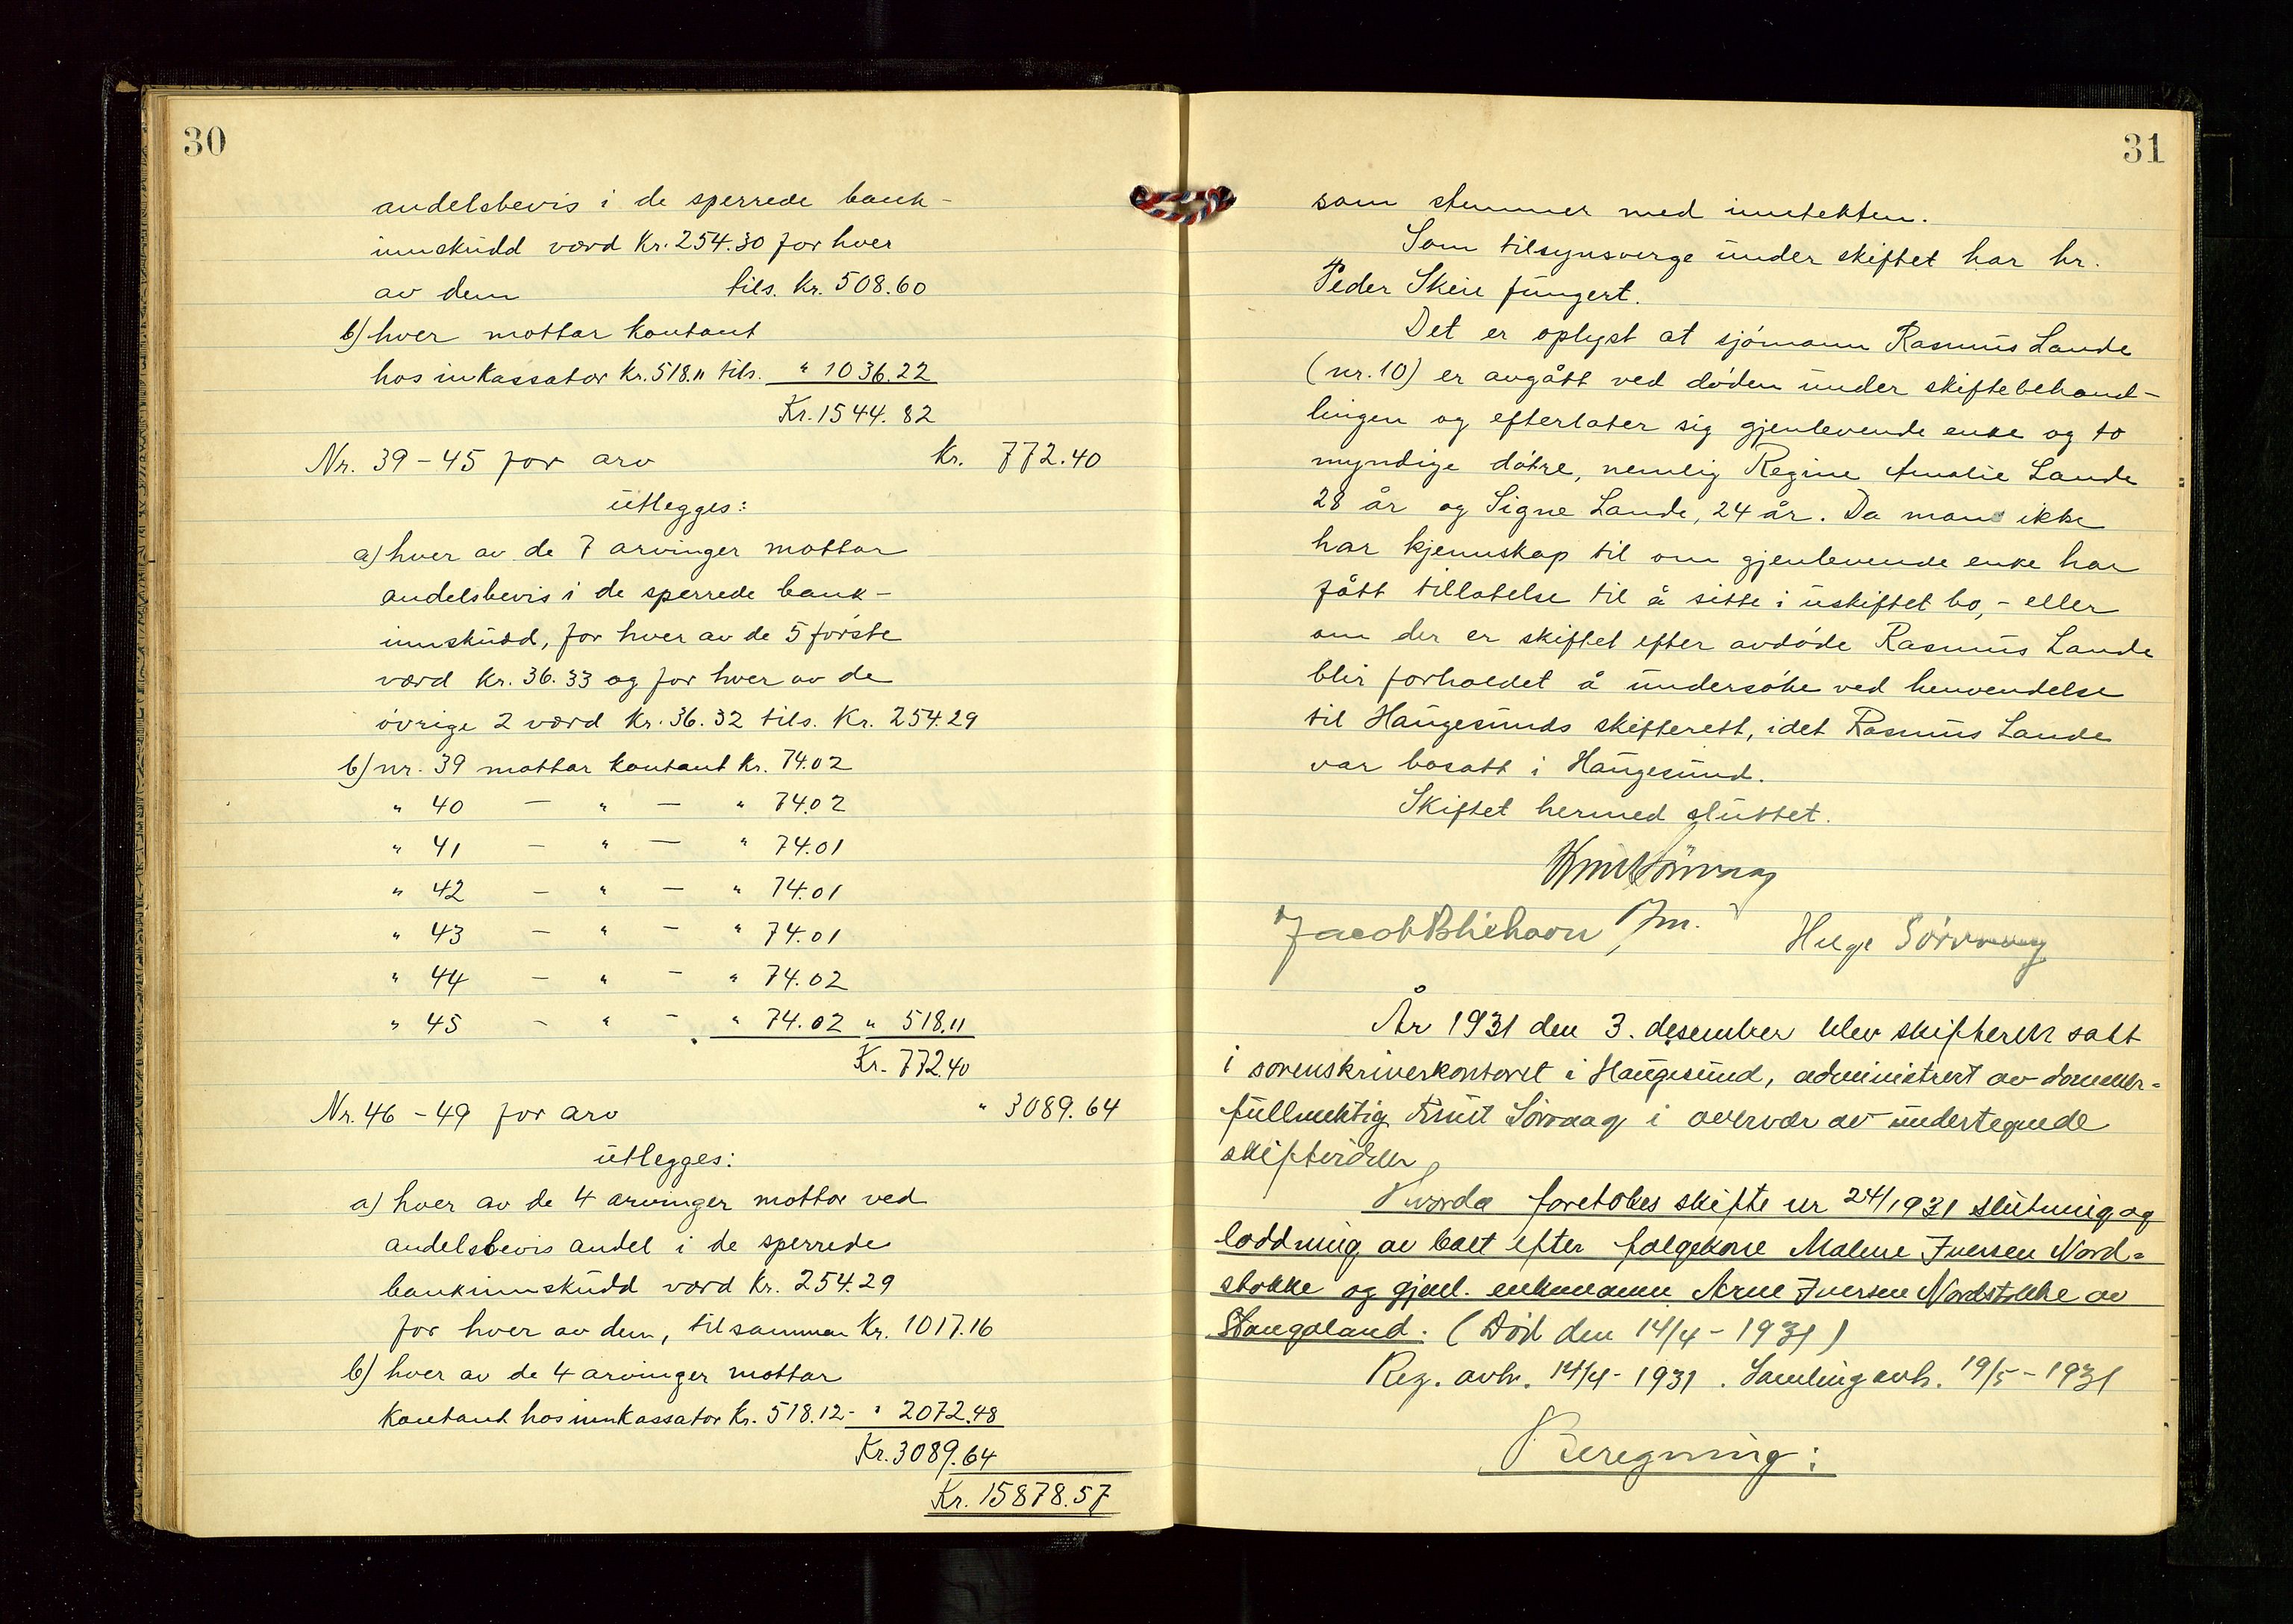 30
andelsbevis i de sperrede bank-
innskudd værd kr. 254.30 for hver
av dem tils. kr. 508.60
b) hver mottar kontant
hos inkassator kr. 518.11 tils. " 1036.22
Kr. 1544.82
Nr. 39-45 for arv kr. 772.40
utlegges:
a) hver av de 7 arvinger mottar
andelsbevis i de sperrede bank-
innskudd, for hver av de 5 første
værd kr. 36.33 og for hver av de
øvrige 2 værd kr. 36.32 tils. Kr. 254.29
b) nr. 39 mottar kontant kr. 74.02
" 40 — " — " 74.02
" 41 — " — " 74.01
" 42 — " — " 74.01
" 43 — " — " 74.01
" 44 — " — " 74.02
" 45 — " — " 74.02 " 518.11
Kr. 772.40
Nr. 46-49 for arv " 3089.64
utlegges:
a) hver av de 4 arvinger mottar ved
andelsbevis andel i de sperrede
bankinnskudd værd kr. 254.29
for hver av dem, tilsammen Kr. 1017.16
b) hver av de 4 arvinger mottar
kontant hos innkassator Kr. 518.12- " 2072.48
Kr. 3089.64
Kr. 15878.57
31
som stemmer med inntekten.
Som tilsynsverge under skiftet har hr.
Peder Skeie fungert.
Det er oplyst at sjømann Rasmus Lande
(nr. 10) er avgått ved døden under skiftebehand-
lingen og efterlater sig gjenlevende enke og to
myndige døtre, nemlig Regine Amalie Lande
28 år og Signe Lande, 24 år. Da man ikke
har kjennskap til om gjenlevende enke har
fått tillatelse til å sitte i uskiftet bo, - eller
om der er skiftet efter avdøde Rasmus Lande
blir forholdet å undersøke ved henvendelse
til Haugesunds skifterett, idet Rasmus Lande
var bosatt i Haugesund.
Skiftet hermed sluttet.
Knut Sørvaag
Jacob Helge Sørvaag
År 1931 den 3. desember blev skifterett satt
i sorenskriverkontoret i Haugesund, administrert av dommer=
fullmektig Knut Sørvaag i overvær av undertegnede
skiftevidner
Hvorda foretokes skifte nr 24/1931 slutning og
loddning av boet efter følgekone Malene Iversen Nord=
stokke og gjenl. enkemann Arne Iversen Nordstokke av
Stangaland. (Død den 14/4-1931)
Reg. avh. 14/4-1931. Samling avh. 19/5-1931
Beregning: